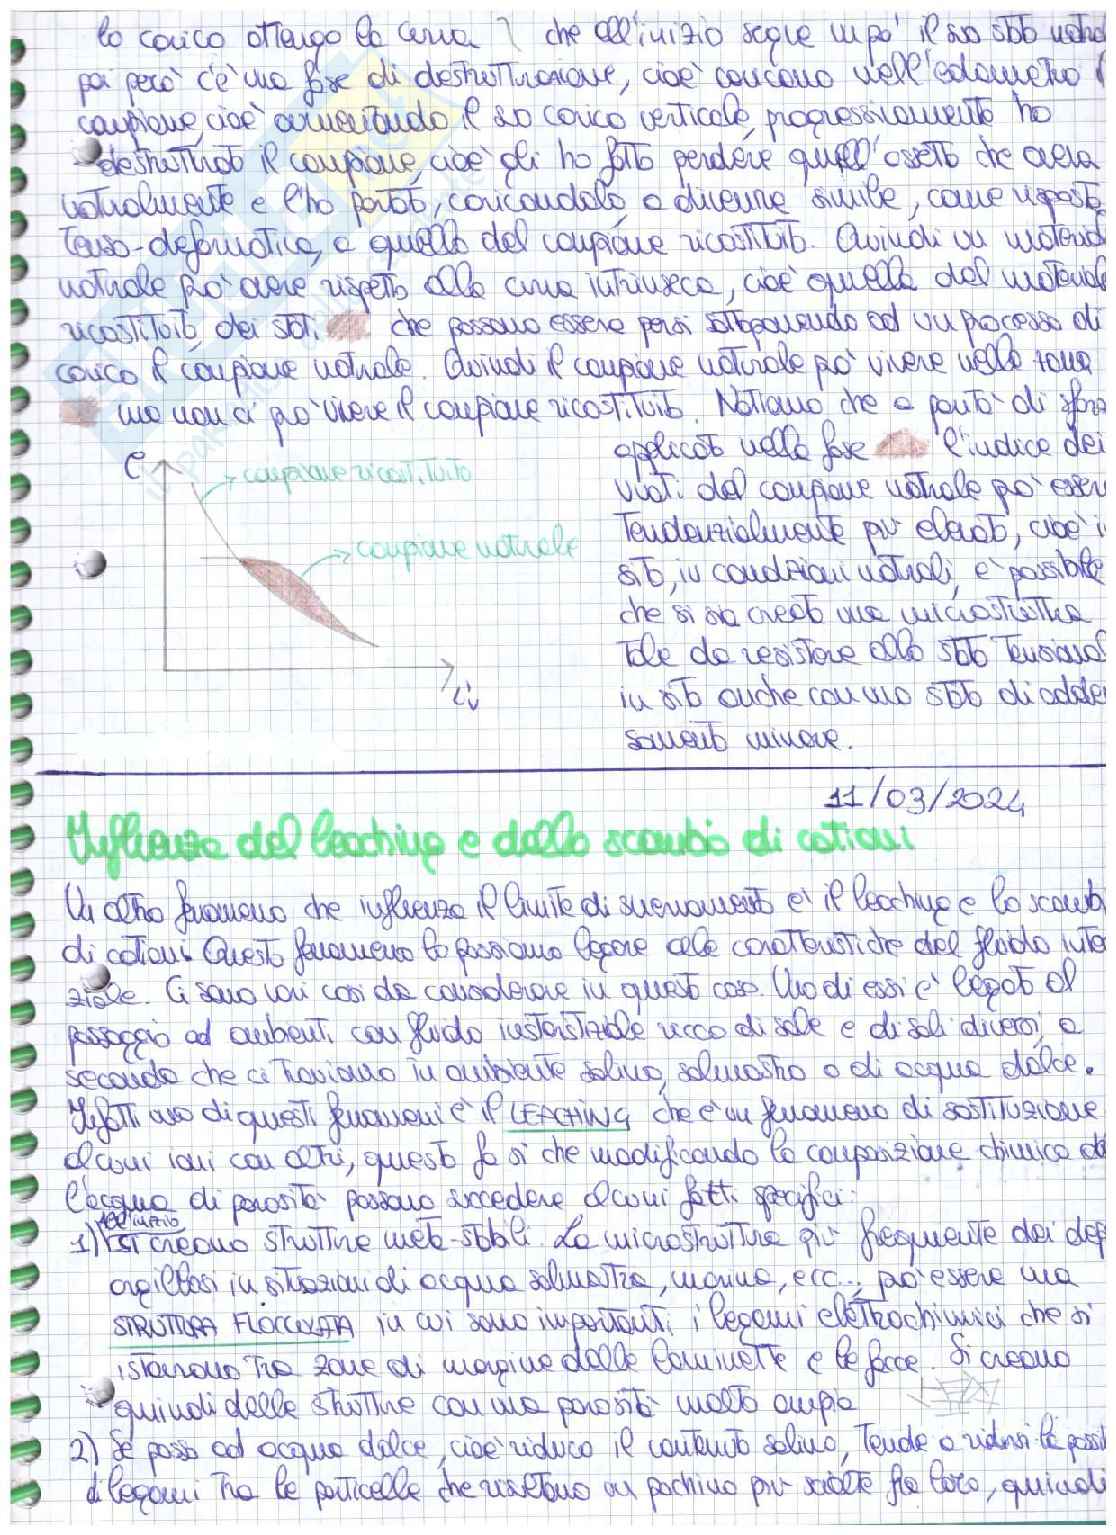 lo carico ottengo la curva che all'inizio segue un po' il suo stato
poi però c'è una fase di destrutturazione, cioè caricando nell'edometro
campione, cioè aumentando il suo carico verticale, progressivamente ho
destrutturato il campione, cioè gli ho fatto perdere quell'assetto che aveva
naturalmente e l'ho portato, caricandolo, a divenire simile, come risposta
tenso-deformativa, a quella del campione ricostituito. Quindi un
naturale può avere rispetto alla curva intrinseca, cioè quella del
ricostituito, dei stati che possono essere persi sottoponendo ad un processo di
carico il campione naturale. Quindi il campione naturale può vivere nella zona
ma non ci può vivere il campione ricostituito. Notiamo che a parità di
applicato nella fase l'indice dei
e
campione ricostituito
vuoti del campione naturale può
tendenzialmente più elevato, cioè
campione naturale
sito, in condizioni naturali, è possibile
che si sia creata una microstruttura
tale da resistere allo stato
in sito anche con uno stato di
samento minore.
11/03/2024
Influenza del leaching e dello scambio di cationi
Un altro fenomeno che influenza il limite di snervamento è il leaching e lo
di cationi. Questo fenomeno lo possiamo legare alle caratteristiche del fluido
ziale. Ci sono vari casi da considerare in questo caso. Uno di essi è legato al
passaggio ad ambienti con fluido interstiziale ricco di sale e di sali diversi, a
seconda che ci troviamo in ambiente salino, salmastro o di acqua dolce.
Infatti uno di questi fenomeni è il LEACHING che è un fenomeno di sostituzione
alcuni ioni con altri, questo fa sì che modificando la composizione chimica
l'acqua di porosità possano succedere alcuni fatti specifici:
all'inizio
1) si creano strutture meta-stabili. La microstruttura più frequente dei
argillosi in situazioni di acqua salmastra, marina, ecc... può essere una
STRUTTURA FLOCCULATA in cui sono importanti i legami elettrochimici che si
istaurano tra zone di margine delle laminette e le facce. Si creano
quindi delle strutture con una porosità molto ampia
2) Se passo ad acqua dolce, cioè riduco il contenuto salino, tende a ridursi la
di legami tra le particelle che risultano un pochino più sciolte fra loro, quindi